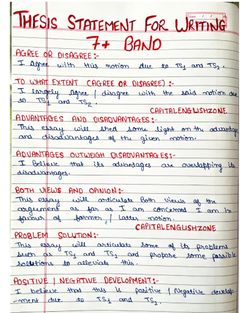 THESIS STATEMENT FOR WRITING
7+ BAND
AGREE OR DISAGREE:-
I agree with this notion due to TS1 and TS2.
TO WHAT EXTENT (AGREE OR DISAGREE):-
I largely agree / disagree with the said notion due
to TS1 and TS2.
CAPITALENGLISHZONE
ADVANTAGES AND DISADVANTAGES:-
This essay will shed some light on the advantages
and disadvantages of the given notion.
ADVANTAGES OUTWEIGH DISADVANTAGES:-
I believe that its advantages are overlapping its
disadvantages.
BOTH VIEWS AND OPINION:-
This essay will articulate Both views of the
argument as far as I am concerned I am in
favour of former / latter notion.
CAPITALENGLISHZONE
PROBLEM SOLUTION:-
This essay will articulate some of its problems
such as TS1 and TS2 and propose some possible
solutions to alleviate this.
POSITIVE / NEGATIVE DEVELOPMENT:-
I believe that this is positive / negative develop-
-ment due to TS1 and TS2.